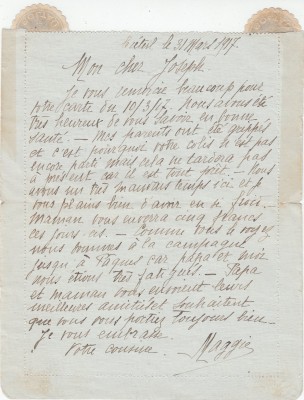 Créteil le 31 Mars 1917
Mon cher Joseph
Je vous remercie beaucoup pour
votre carte du 10/3/17. Nous avons été
très heureux de vous savoir en bonne
santé - Mes parents ont été grippés
et c'est pourquoi votre colis n'est pas
encore parti mais cela ne tardera pas
à présent car il est tout prêt. - Nous
avons un très mauvais temps ici et je
vous plains bien d'avoir
Maman vous enverra cinq francs
ces jours-ci - Comme vous le voyez
nous sommes à la campagne
jusqu'à Pâques car papa et moi
nous étions très fatigués. - Papa
et maman vous envoient leurs
meilleures amitiés et souhaitent
que vous vous portiez toujours bien -
Je vous embrasse
Votre cousine Maggie